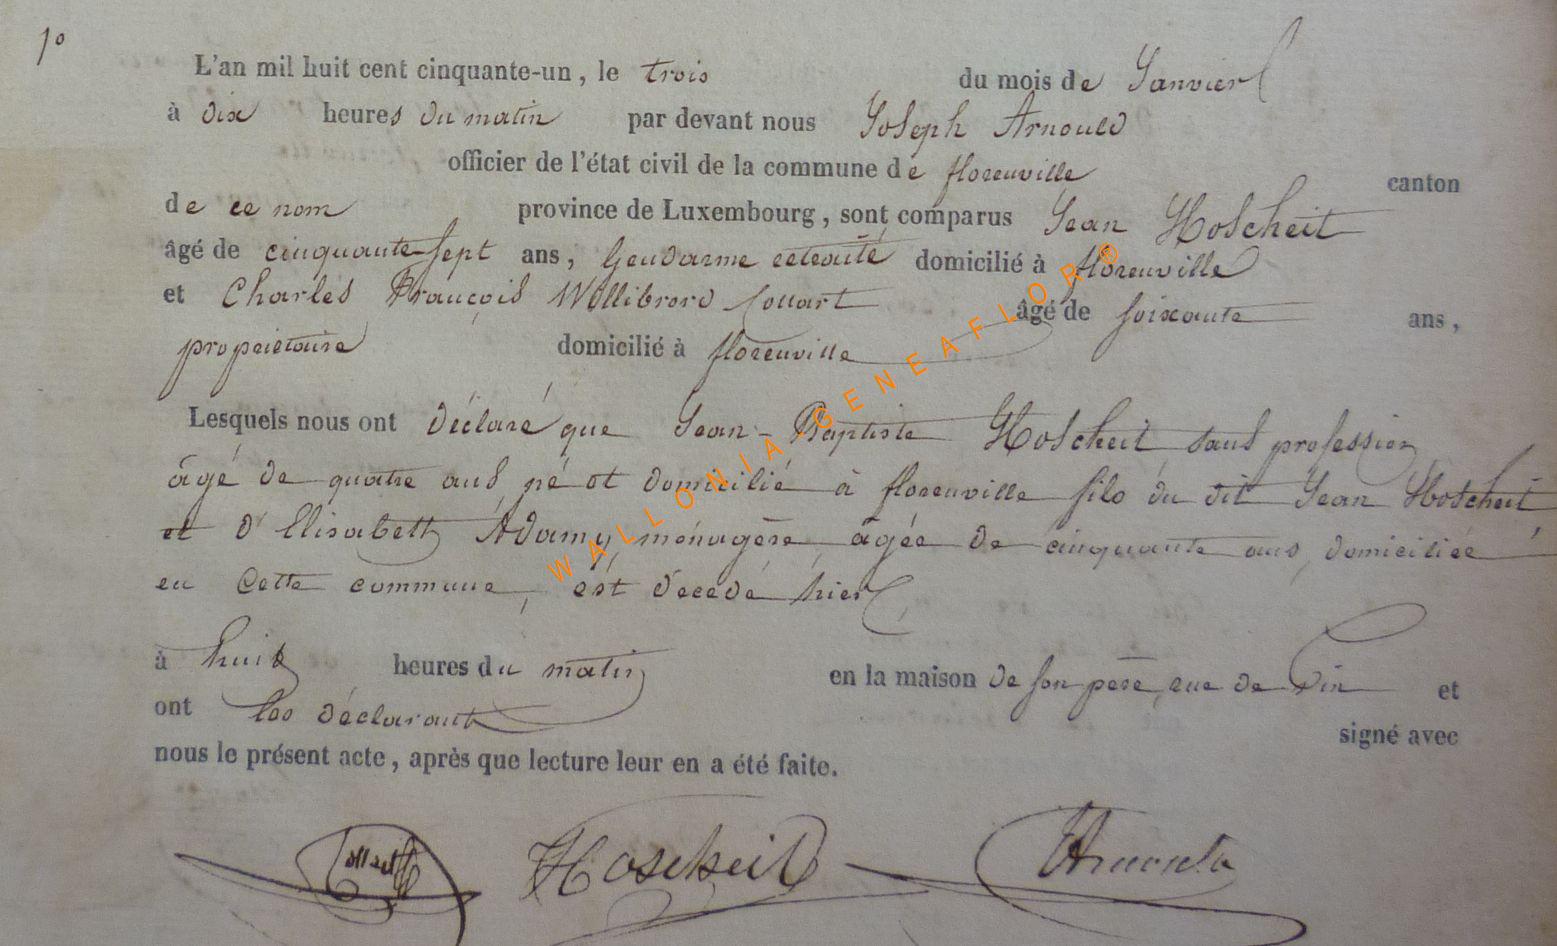 1°
L'an mil huit cent cinquante-un, le trois du mois de Janvier
à dix heures du matin par devant nous Joseph Arnould
officier de l'état civil de la commune de florenville canton
de ce nom province de Luxembourg, sont comparus Jean Hoscheit
âgé de cinquante-sept ans, Gendarme retraité domicilié à florenville
et Charles François Willibrord Collart âgé de soixante ans,
propriétaire domicilié à florenville
Lesquels nous ont déclaré que Jean-Baptiste Hoscheit sans profession
âgé de quatre ans né et domicilié à florenville fils du dit Jean Hoscheit
et d'Elisabeth Adamy, ménagère, âgée de cinquante ans, domiciliée
en cette commune, est décédé hier
à huit heures du matin en la maison de son père, rue de Vin et
ont les déclarants signé avec
nous le présent acte, après que lecture leur en a été faite.
Collart Hoscheit JArnould
WALLONIA GENEAFLOR®